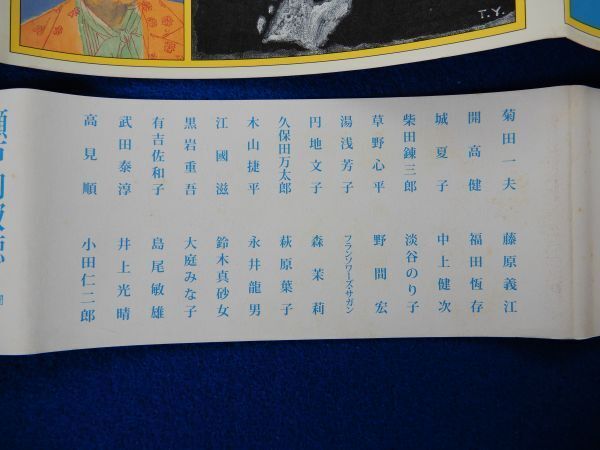 T.Y.
菊田一夫 藤原義江
開高健 福田恆存
城夏子 中上健次
柴田錬三郎 淡谷のり子
草野心平 野間宏
湯浅芳子 フランソワーズ・サガン
円地文子 森茉莉
久保田万太郎 萩原葉子
木山捷平 永井龍男
江國滋 鈴木真砂女
黒岩重吾 大庭みな子
有吉佐和子 島尾敏雄
武田泰淳 井上光晴
高見順 小田仁二郎